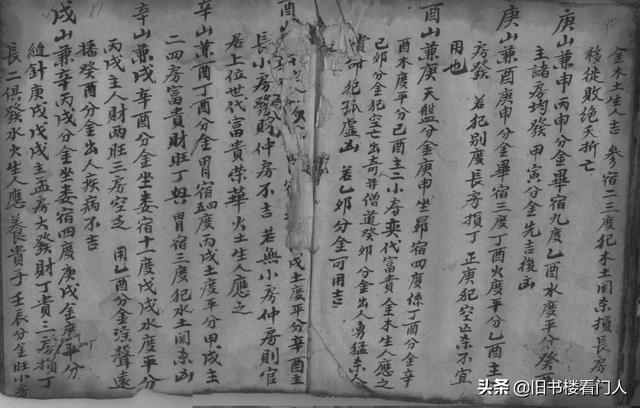 金木生人吉 參宿二三度犯木土関杀損長房
移徙敗絶夭折亡
庚山兼申丙申分金畢宿九度乙酉水度平分癸
主諸房均發甲寅分金先吉後凶
庚山兼酉庚申分金畢宿三度丁酉火度平分乙酉主
房發 若犯别度長房損丁 正庚犯空亡杀不宜
用也
酉山兼庚天盤分金庚申坐昴宿四度係丁酉分金辛
酉木度平分己酉主二小房奕代富貴金木生人應之
己卯分金犯空亡出奇并僧道癸卯分金出人勇猛杀人
犯孤虚凶 若乙卯分金可用吉
酉
戌土度平分辛酉主
長小房發財仲房不吉 若無小房仲房則官
居上位世代富貴傑華火土生人應之
辛山兼酉丁酉分金胃宿四度丙戌土度平分甲戌主
二四房富貴財旺丁興 胃宿三度犯水土関杀凶
辛山兼戌辛酉分金坐婁宿十一度戊戌水度平分
丙戌主人財两旺三房空乏 用乙酉分金强聲遠
播癸酉分金出人疾病不吉
戌山兼辛丙戌分金坐婁宿四度庚戌金度平分
縫針庚戌戊戌主孟房大發財丁貴三房損丁
長二俱發水火生人應 貴子 壬辰分金旺小房
头条 @旧书楼看门人